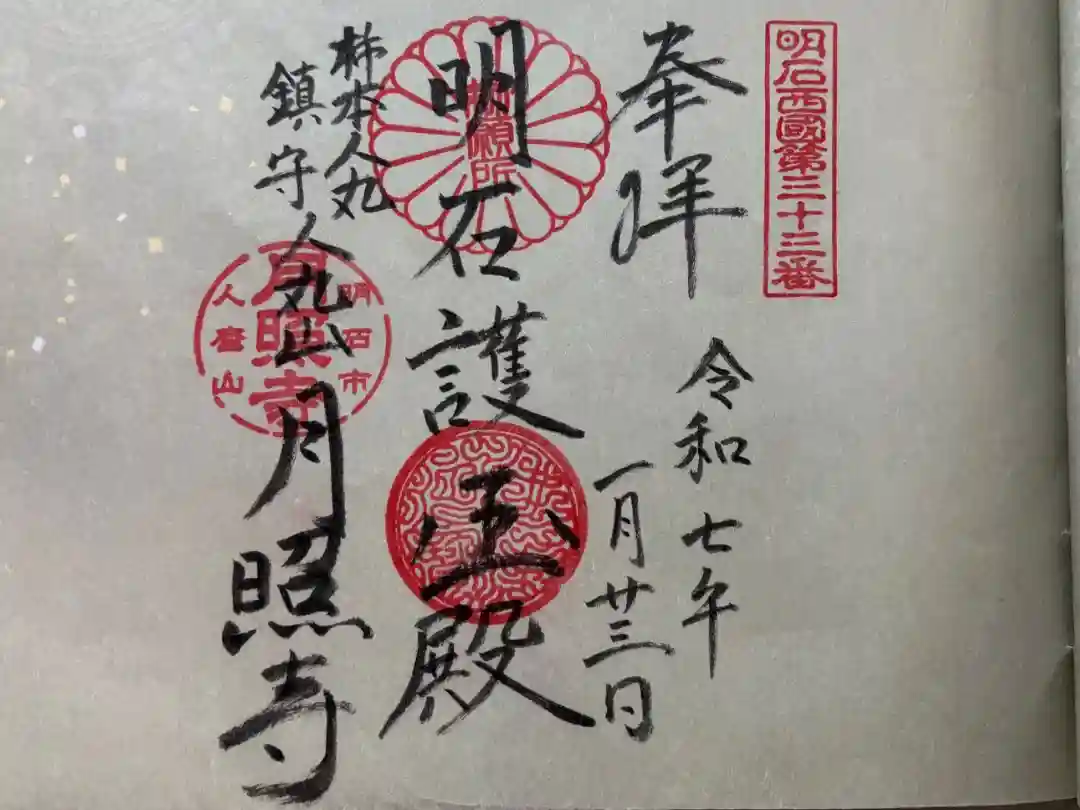 明石西國第三十三番
奉拝
令和七年
一月廿三日
勅願所
明石護国殿
柿本人丸
鎮守
人丸山月照寺
月照寺
明石市
人麿山